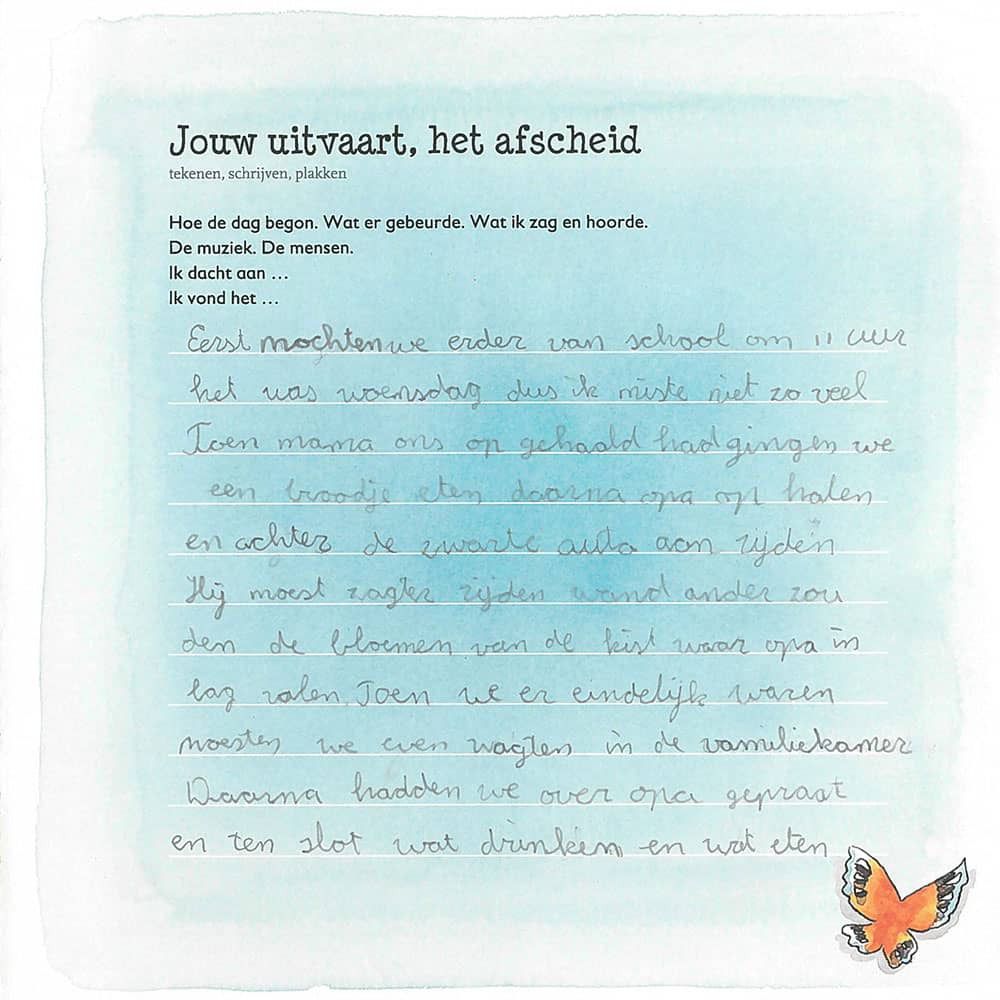 Jouw uitvaart, het afscheid
tekenen, schrijven, plakken
Hoe de dag begon. Wat er gebeurde. Wat ik zag en hoorde.
De muziek. De mensen.
Ik dacht aan …
Ik vond het …
Eerst mochten we erder van school om 11 uur
het was woensdag dus ik miste niet zo veel
Toen mama ons op gehaald had gingen we
een broodje eten daarna opa op halen
en achter de zwarte auto aan rijden
Hij moest zagter rijden wand ander zou
den de bloemen van de kist waar opa in
lag valen. Toen we er eindelijk waren
moesten we even wagten in de vamiliekamer
Daarna hadden we over opa gepraat
en ten slot wat drinken en wat eten